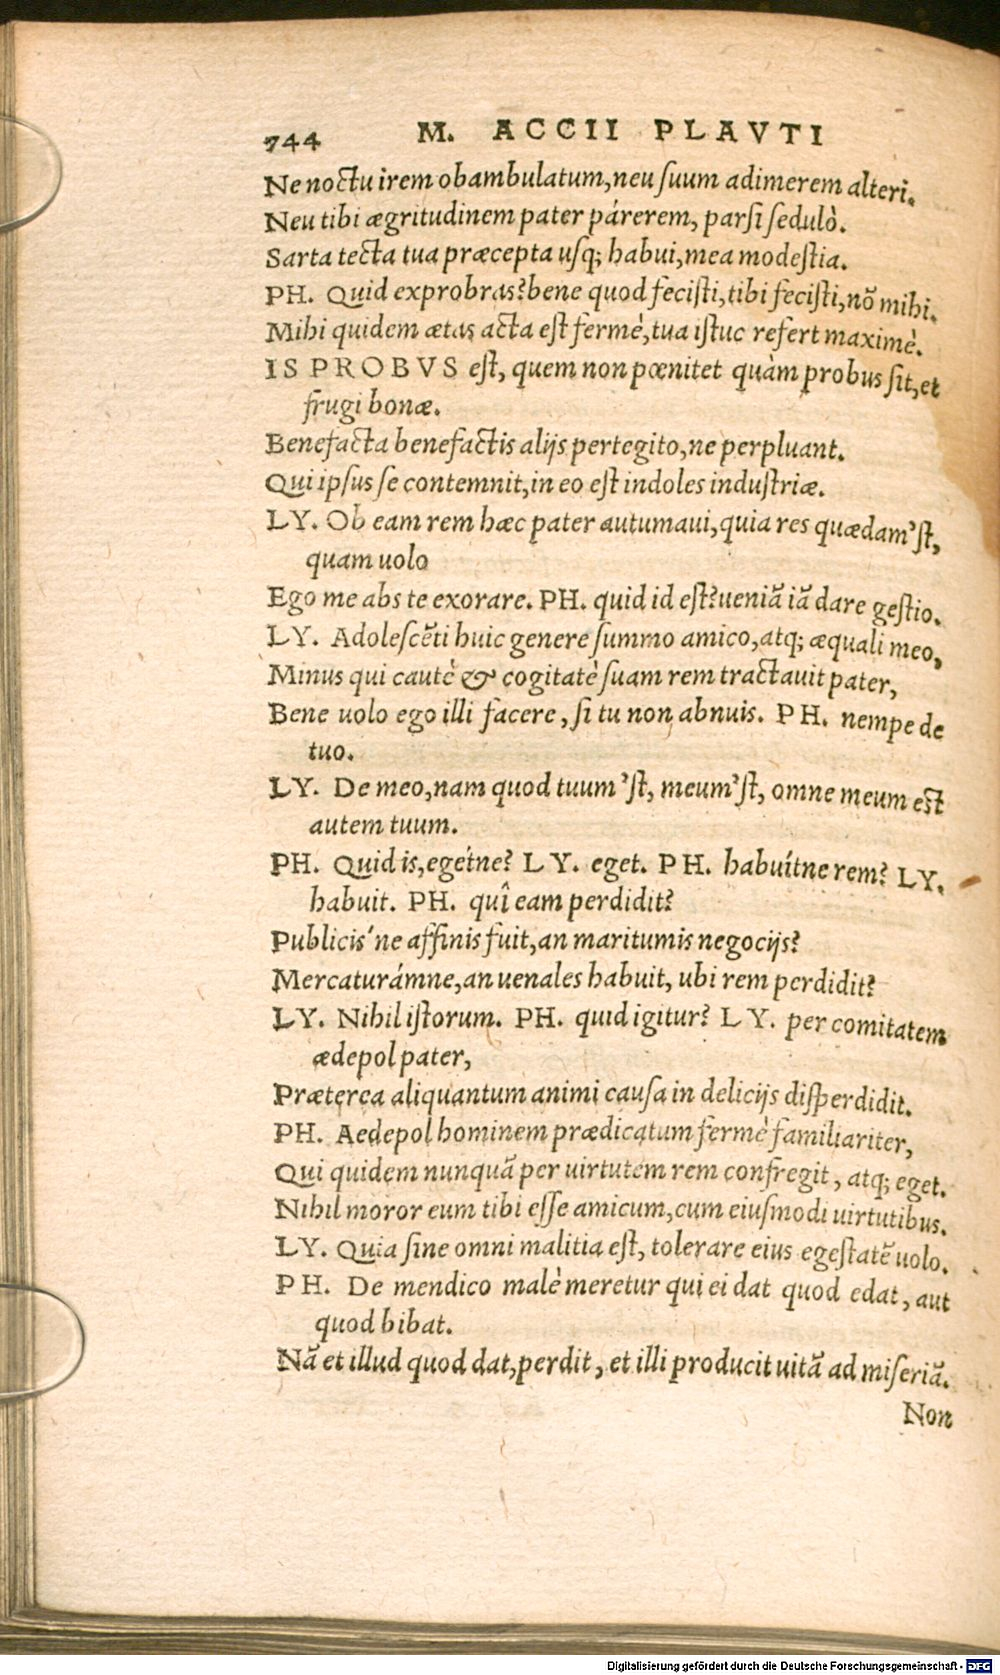 744 M. ACCII PLAVTI
Ne noctu irem obambulatum, neu suum adimerem alteri.
Neu tibi ægritudinem pater párerem, parsi sedulò.
Sarta tecta tua præcepta usq; habui, mea modestia.
PH. Quid exprobras? bene quod fecisti, tibi fecisti, nõ mihi.
Mihi quidem ætas acta est fermè, tua istuc refert maximè.
IS PROBVS est, quem non pœnitet quàm probus sit, et
frugi bonæ.
Benefacta benefactis alijs pertegito, ne perpluant.
Qui ipsus se contemnit, in eo est indoles industriæ.
LY. Ob eam rem hæc pater autumaui, quia res quædam'st,
quam uolo
Ego me abs te exorare. PH. quid id est? ueniã iã dare gestio.
LY. Adolescẽti huic genere summo amico, atq; æquali meo,
Minus qui cautè & cogitatè suam rem tractauit pater,
Bene uolo ego illi facere, si tu non abnuis. PH. nempe de
tuo.
LY. De meo, nam quod tuum'st, meum'st, omne meum est
autem tuum.
PH. Quid is, egétne? LY. eget. PH. habuítne rem? LY.
habuit. PH. quî eam perdidit?
Publicis'ne affinis fuit, an maritumis negocijs?
Mercaturámne, an uenales habuit, ubi rem perdidit?
LY. Nihil istorum. PH. quid igitur? LY. per comitatem
ædepol pater,
Præterea aliquantum animi causa in delicijs disperdidit.
PH. Aedepol hominem prædicatum fermè familiariter,
Qui quidem nunquã per uirtutem rem confregit, atq; eget.
Nihil moror eum tibi esse amicum, cum eiusmodi uirtutibus.
LY. Quia sine omni malitia est, tolerare eius egestatẽ uolo.
PH. De mendico malè meretur qui ei dat quod edat, aut
quod bibat.
Nã et illud quod dat, perdit, et illi producit uitã ad miseriã.
Non
Digitalisierung gefördert durch die Deutsche Forschungsgemeinschaft - DFG